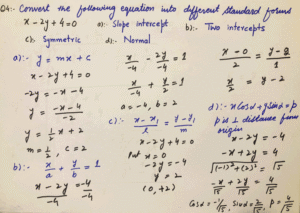 Q4:- Convert the following equation into different standard forms
x - 2y + 4 = 0 a):- Slope intercept b):- Two intercepts
c):- Symmetric d):- Normal
a):- y = mx + c
x - 2y + 4 = 0
-2y = -x - 4
y = -x - 4 / -2
y = 1/2 x + 2
m = 1/2, c = 2
b):- x/a + y/b = 1
x - 2y = -4
x/-4 - 2y/-4 = 1
x/-4 + y/2 = 1
a = -4, b = 2
c):- x - x₁ / l = y - y₁ / m
x - 2y + 4 = 0
Put x = 0
-2y = -4
y = 2
(0, +2)
x - 0 / 2 = y - 2 / 1
x/2 = y - 2
d):- x Cosα + y Sinα = p
p is ⊥ distance from origin
x - 2y = -4
-x + 2y = 4
√(-1)² + (2)² = √5
-x/√5 + 2y/√5 = 4/√5
Cosα = -1/√5, Sinα = 2/√5, p = 4/√5